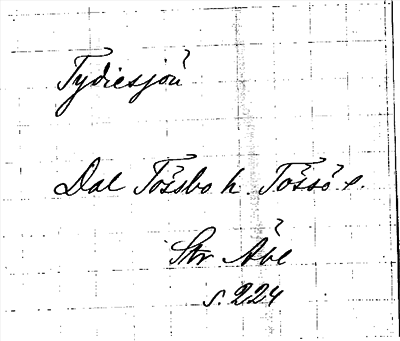 Tydiesjön
Dal Tössbo h. Tössö s.
Str Åbl
s. 224